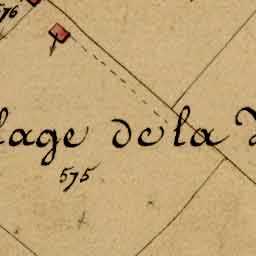 576
lage de la
575